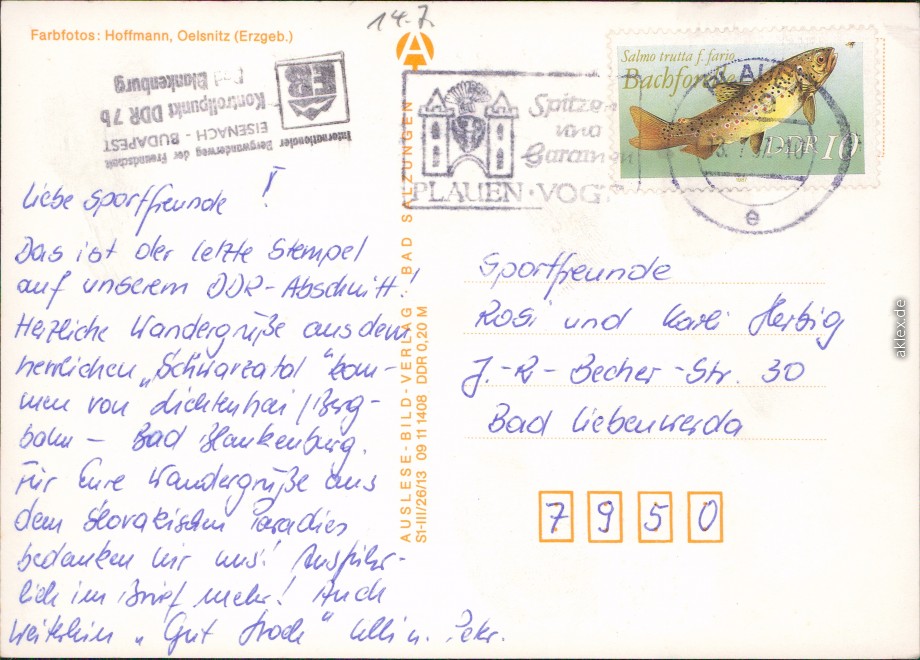 14.7.
Farbfotos: Hoffmann, Oelsnitz (Erzgeb.)
Internationaler Bergwanderweg der Freundschaft
EISENACH - BUDAPEST
Kontrollpunkt DDR 7b
Bad Blankenburg
EB
Spitzen
und
Gardinen
PLAUEN · VOG
PLAUEN
13. 7. 87.-10
e
Salmo trutta f. fario
Bachforelle
DDR 10
Liebe Sportfreunde!
Das ist der letzte Stempel
auf unserem DDR-Abschnitt!
Herzliche Wandergrüße aus dem
herrlichen „Schwarzatal" kom-
men von Lichtenhai/Berg-
bahn - Bad Blankenburg.
Für Eure Wandergrüße aus
dem Slovakischen Paradies
bedanken wir uns! Ausführ-
lich im Brief mehr! Auch
weiterhin „Gut Hock" Ulli u. Petr.
AUSLESE-BILD-VERLAG BAD SALZUNGEN
S1-III/26/13 09 11 1408 DDR 0,20 M
Sportfreunde
Rosi und Karli Herbig
J.-R.-Becher-Str. 30
Bad Liebenwerda
7950
aklex.de